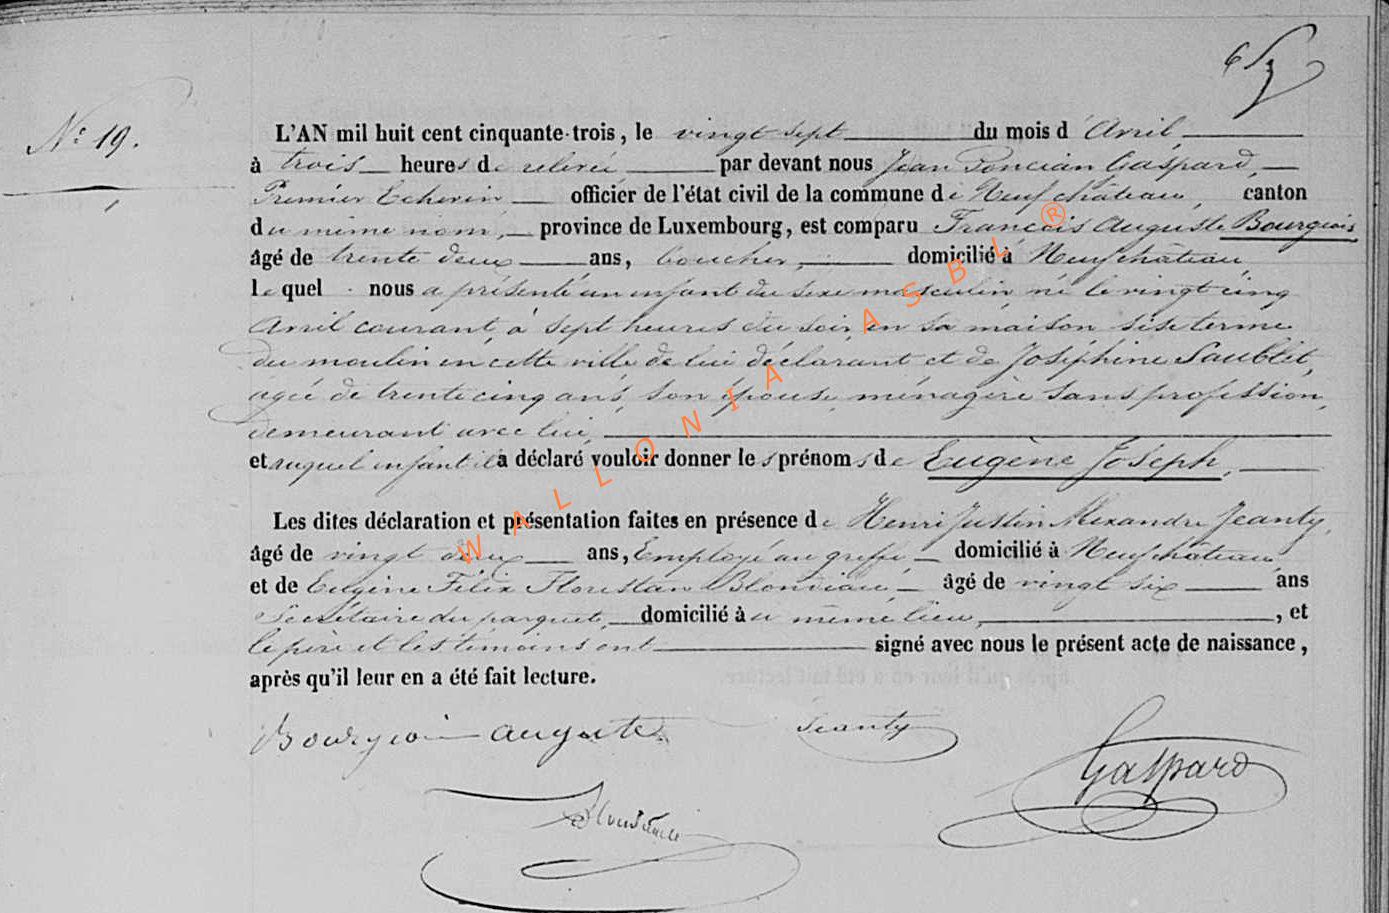 N.° 19.
L'AN mil huit cent cinquante-trois, le vingt sept du mois d'Avril,
à trois heures de relevée, par devant nous Jean Poncian Gaspard,
Premier Echevin officier de l'état civil de la commune de Neufchâteau, canton
du même nom, province de Luxembourg, est comparu François Auguste Bourgeois
âgé de trente deux ans, boucher, domicilié à Neufchâteau
lequel nous a présenté un enfant du sexe masculin, né le vingt cinq
Avril courant, à sept heures du soir, en sa maison sise terme
du moulin en cette ville de lui déclarant et de Joséphine Saublet,
agée de trente cinq ans, son épouse, ménagère sans profession,
demeurant avec lui,
et auquel enfant il a déclaré vouloir donner les prénoms de Eugène Joseph,
Les dites déclaration et présentation faites en présence de Henri Justin Alexandre Jeanty,
âgé de vingt deux ans, Employé au greffe, domicilié à Neufchâteau,
et de Eugène Félix Florestan Blondiau, âgé de vingt six ans
Secrétaire du parquet, domicilié au même lieu, , et
le père et les témoins ont signé avec nous le présent acte de naissance,
après qu'il leur en a été fait lecture.
Bourgeois auguste Jeanty
Gaspard
WALLONIA ASBL ®